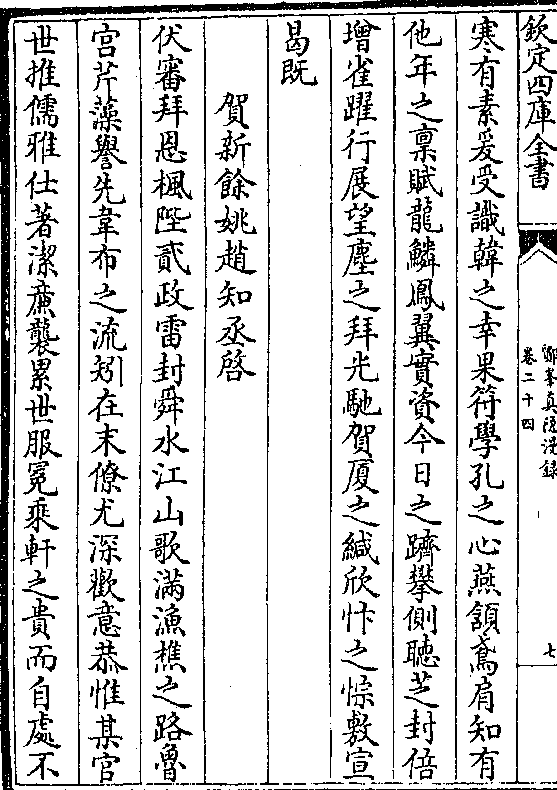 欽定四庫全書
鄮峯真隠漫録
卷二十四
七
寒有素爰受識韓之幸果符學孔之心燕頷鳶肩知有
他年之稟賦龍鱗鳳翼實資今日之躋攀側聽芝封倍
增雀躍行展望塵之拜先馳賀厦之緘欣忭之悰敷宣
曷既
賀新餘姚趙知丞啓
伏審拜恩楓陛貳政雷封舜水江山歌滿漁樵之路魯
宫芹藻譽先韋布之流矧在末僚尤深歡意恭惟某官
世推儒雅仕著潔㢘襲累世服冕乘軒之貴而自處不